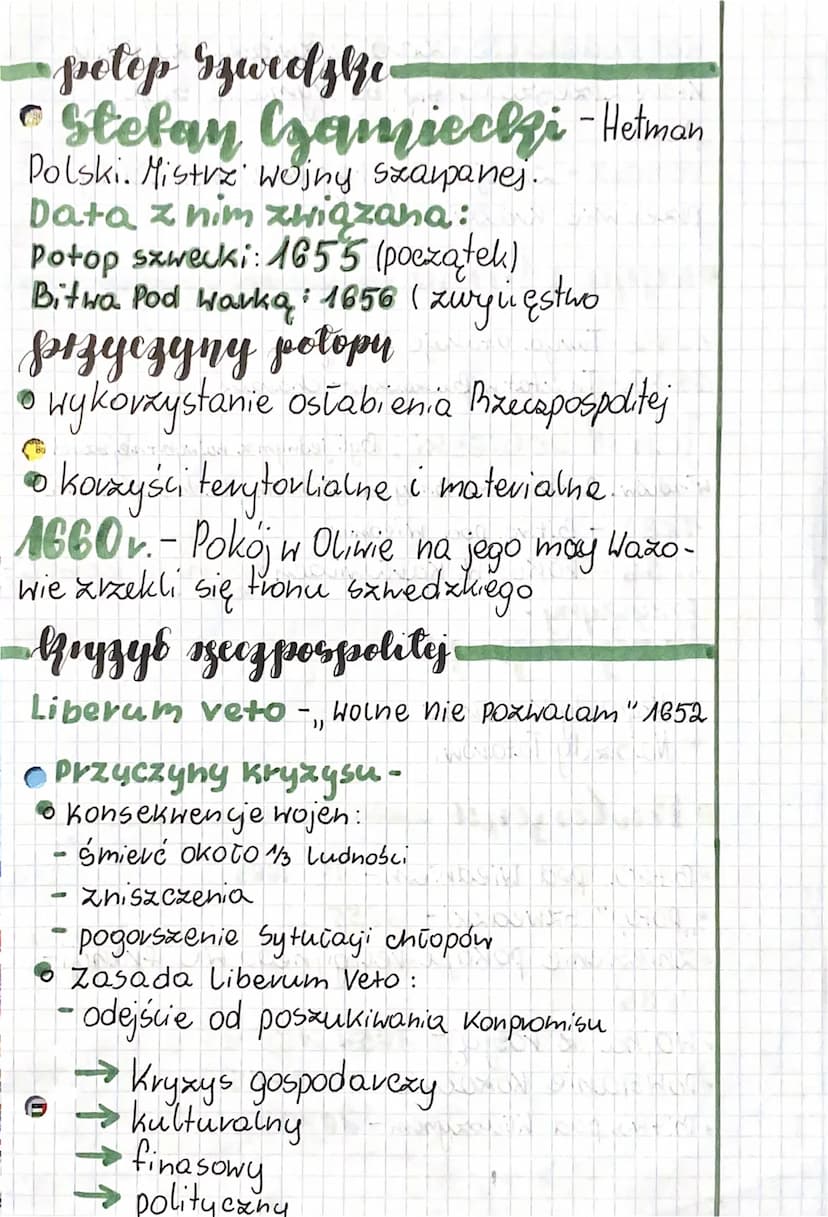 potop Szwedzki
Stefan Czarniecki - Hetman
Polski. Mistrz wojny szarpanej.
Data z nim związana:
Potop szwecki: 1655 (początek)
Bitwa Pod Warką: 1656 ( zwycięstwo
przyczyny potopu
wykorzystanie osłabienia Rzeczpospolitej
korzyści terytorlialne i materialne.
1660r. - Pokój w Oliwie na jego mocy Wazo-
wie zrzekli się tronu szwedzkiego
kryzys rzeczpospolitej
Liberum veto - „Wolne nie pozwalam" 1652
Przyczyny kryzysu -
Konsekwencje wojen:
- śmierć około 1/3 ludności
- zniszczenia
- pogorszenie sytułacji chłopów
Zasada Liberum Veto:
- odejście od poszukiwania Konpromisu
→ Kryzys gospodarczy
→ kulturalny
→ finasowy
→ polityczny